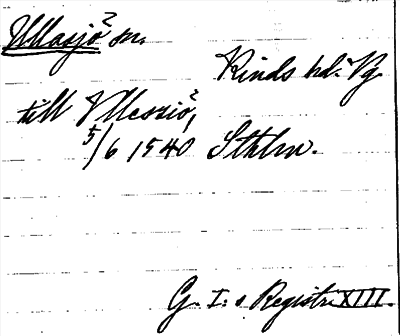 Ullasjö² sn.
Kinds hd. Vg.
till Vllesziö²,
5/6 1540 Sthlm.
G. I:s Registr. XIII.